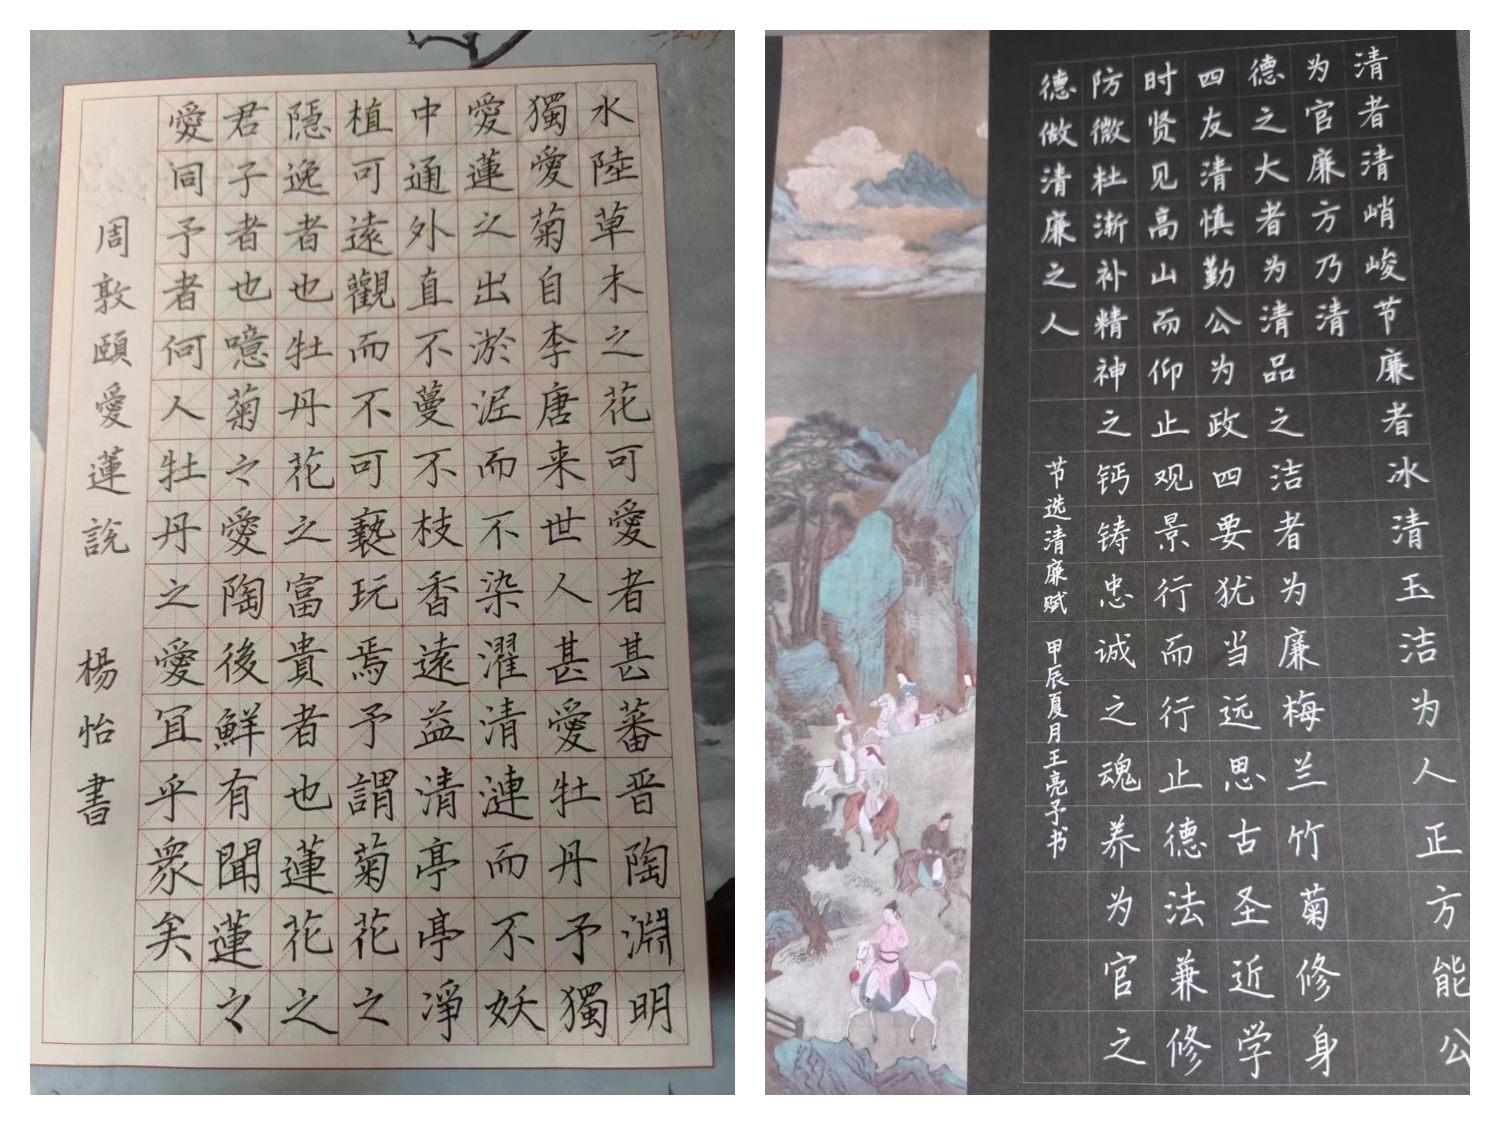 水陸草木之花可愛者甚蕃晋陶淵明
獨愛菊自李唐来世人甚愛牡丹予獨
愛蓮之出淤泥而不染濯清漣而不妖
中通外直不蔓不枝香遠益清亭亭凈
植可遠觀而不可褻玩焉予謂菊花之
隱逸者也牡丹花之富貴者也蓮花之
君子者也噫菊之愛陶後鮮有聞蓮之
愛同予者何人牡丹之愛冝乎衆矣
周敦頤愛蓮說 楊怡書
清者清峭峻节廉者冰清玉洁为人正方能公
为官廉方乃清
德之大者为清品之洁者为廉梅兰竹菊修身
四友清慎勤公为政四要犹当远思古圣近学
时贤见高山而仰止观景行而行止德法兼修
防微杜渐补精神之钙铸忠诚之魂养为官之
德做清廉之人
节选清廉赋 甲辰夏月王亮予书